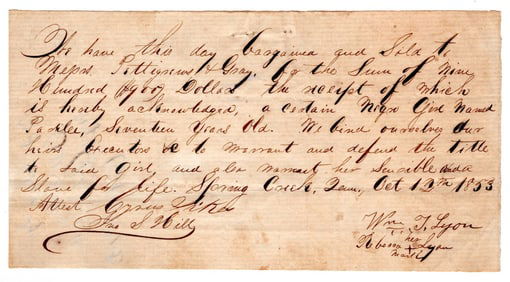 We have this day bargained and Sold to
Messrs. Pettigrews & Gray, for the Sum of Nine
Hundred (900) Dollars the receipt of which
is hereby acknowledged, a certain Negro Girl Named
Seventeen Years Old. We bind ourselves our
heirs &c to Warrant and defend the title
to Said Girl, and also warrant her Sensible and a
Slave for life. Spring Creek, Tenn, Oct 12th 1853
Attest Cyrus
Jno S. Hill
Wm. T. Lyon
her
Rebecca + Lyon
mark